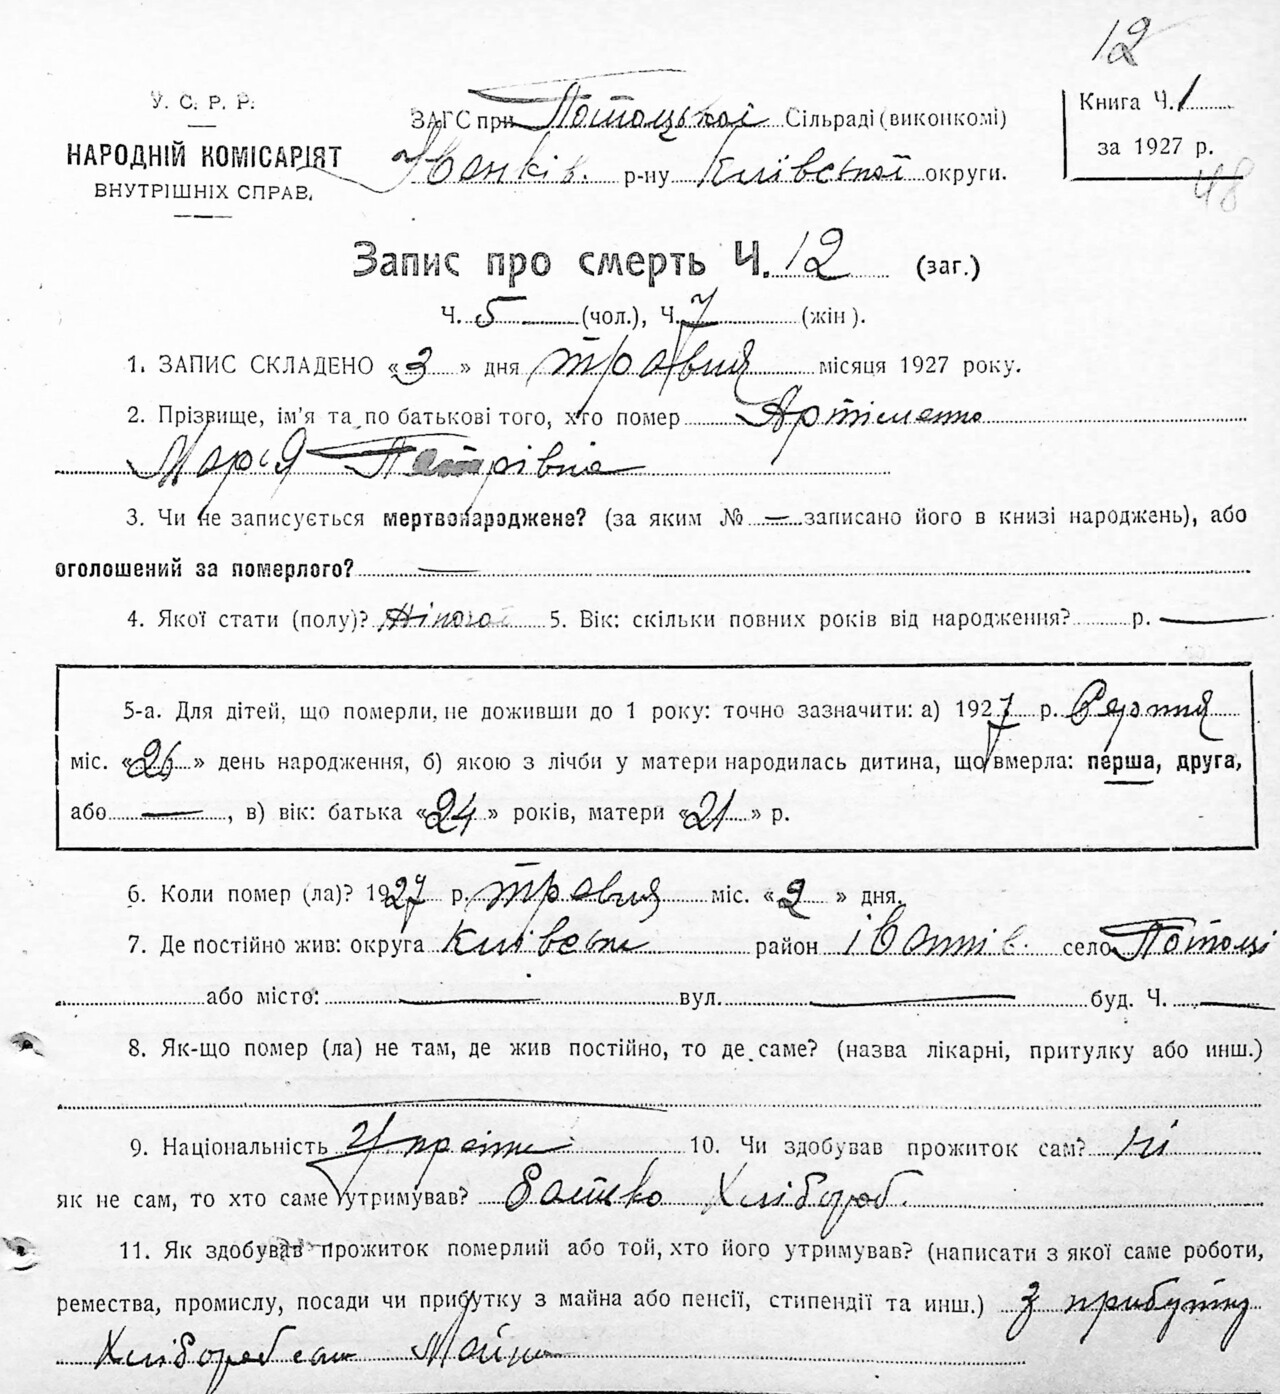 12
У. С. Р. Р.
НАРОДНІЙ КОМІСАРІЯТ
ВНУТРІШНІХ СПРАВ.
ЗАГС при Потоцької Сільраді (виконкомі)
Іванків. р-ну Київської округи.
Книга Ч. 1
за 1927 р.
48
Запис про смерть Ч. 12 (заг.)
Ч. 5 (чол.), Ч. 7 (жін).
1. ЗАПИС СКЛАДЕНО «3» дня травня місяця 1927 року.
2. Прізвище, ім'я та по батькові того, хто помер Артіменко
Марія Петрівна
3. Чи не записується мертвонароджене? (за яким № — записано його в книзі народжень), або
оголошений за померлого? —
4. Якої стати (полу)? Жіночої 5. Вік: скільки повних років від народження? р. —
5-а. Для дітей, що померли, не доживши до 1 року: точно зазначити: а) 1927 р. Серпня
міс. «26» день народження, б) якою з лічби у матери народилась дитина, що вмерла: перша, друга,
або —, в) вік: батька «24» років, матери «21» р.
6. Коли помер (ла)? 1927 р. травня міс. «2» дня.
7. Де постійно жив: округа Київська район Іванків. село Потоці
або місто: — вул. — буд. Ч. —
8. Як-що помер (ла) не там, де жив постійно, то де саме? (назва лікарні, притулку або инш.)
—
9. Національність Українка 10. Чи здобував прожиток сам? Ні
як не сам, то хто саме утримував? Батько Хлібороб.
11. Як здобував прожиток померлий або той, хто його утримував? (написати з якої саме роботи,
ремества, промислу, посади чи прибутку з майна або пенсії, стипендії та инш.) З прибутку
Хліборобськ Майна